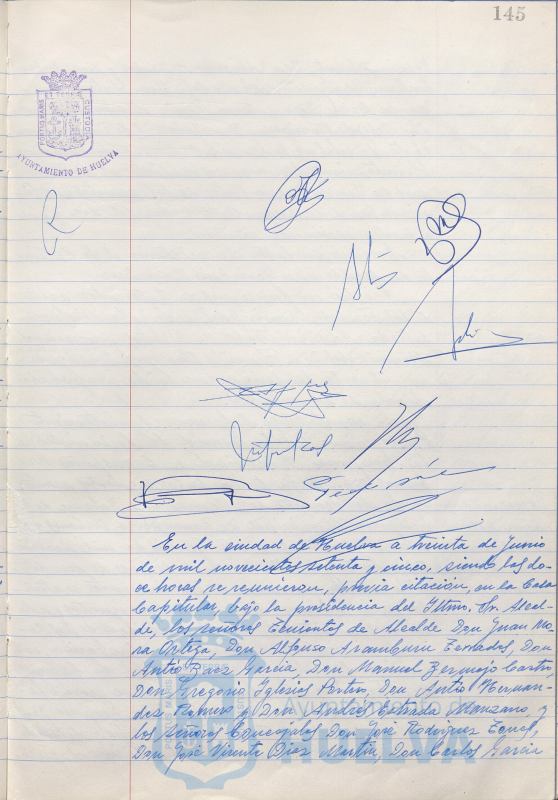 145
PORTUS MARIS ET TERRAE CUSTODIA
AYUNTAMIENTO DE HUELVA
En la ciudad de Huelva a treinta de Junio
de mil novecientos setenta y cinco, siendo las do-
ce horas se reunieron, previa citación, en la Casa
Capitular, bajo la presidencia del Iltmo. Sr. Alcal-
de, los señores Tenientes de Alcalde Don Juan Mo-
ra Ortega, Don Alfonso Aramburu Terrades, Don
Antº Baez García, Don Manuel Bermejo Castro
Don Gregorio Iglesias Don Antº Hernan-
dez y Don Andrés Estrada Manzano, y
los Señores Concejales Don José Rodríguez
Don José Vicente Díaz Martín, Don Carlos García
Ayuntamiento de
HUELVA